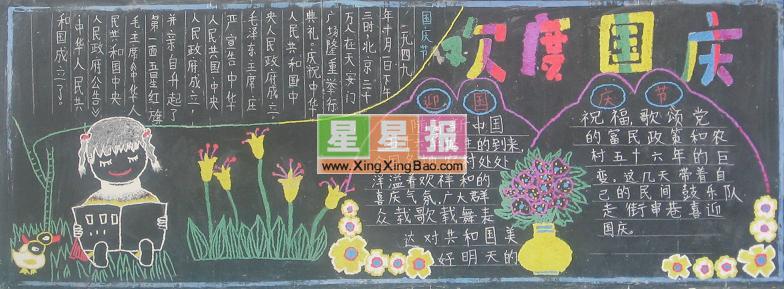 欢度国庆
国庆节
一九四九
年十月一日下午
三时,北京三十
万人在天安门
广场隆重举行
典礼,庆祝中华
人民共和国中
央人民政府成立。
毛泽东主席庄
严宣告中华
人民共和国中央
人民政府成立,
并亲自升起了
第一面五星红旗
毛主席《中华人
民共和国中央
人民政府公告》
中华人民共
和国成立了。
迎国
中国
的到来,
村处处
洋溢着欢祥和的
喜庆气氛,广大群
众载歌载舞表
达对共和国美
好明天的
庆节
祝福歌颂党
的富民政策和农
村五十六年的巨
变。这几天带着自
己的民间鼓乐队
走街串巷喜迎
国庆。
星星报
www.XingXingBao.com